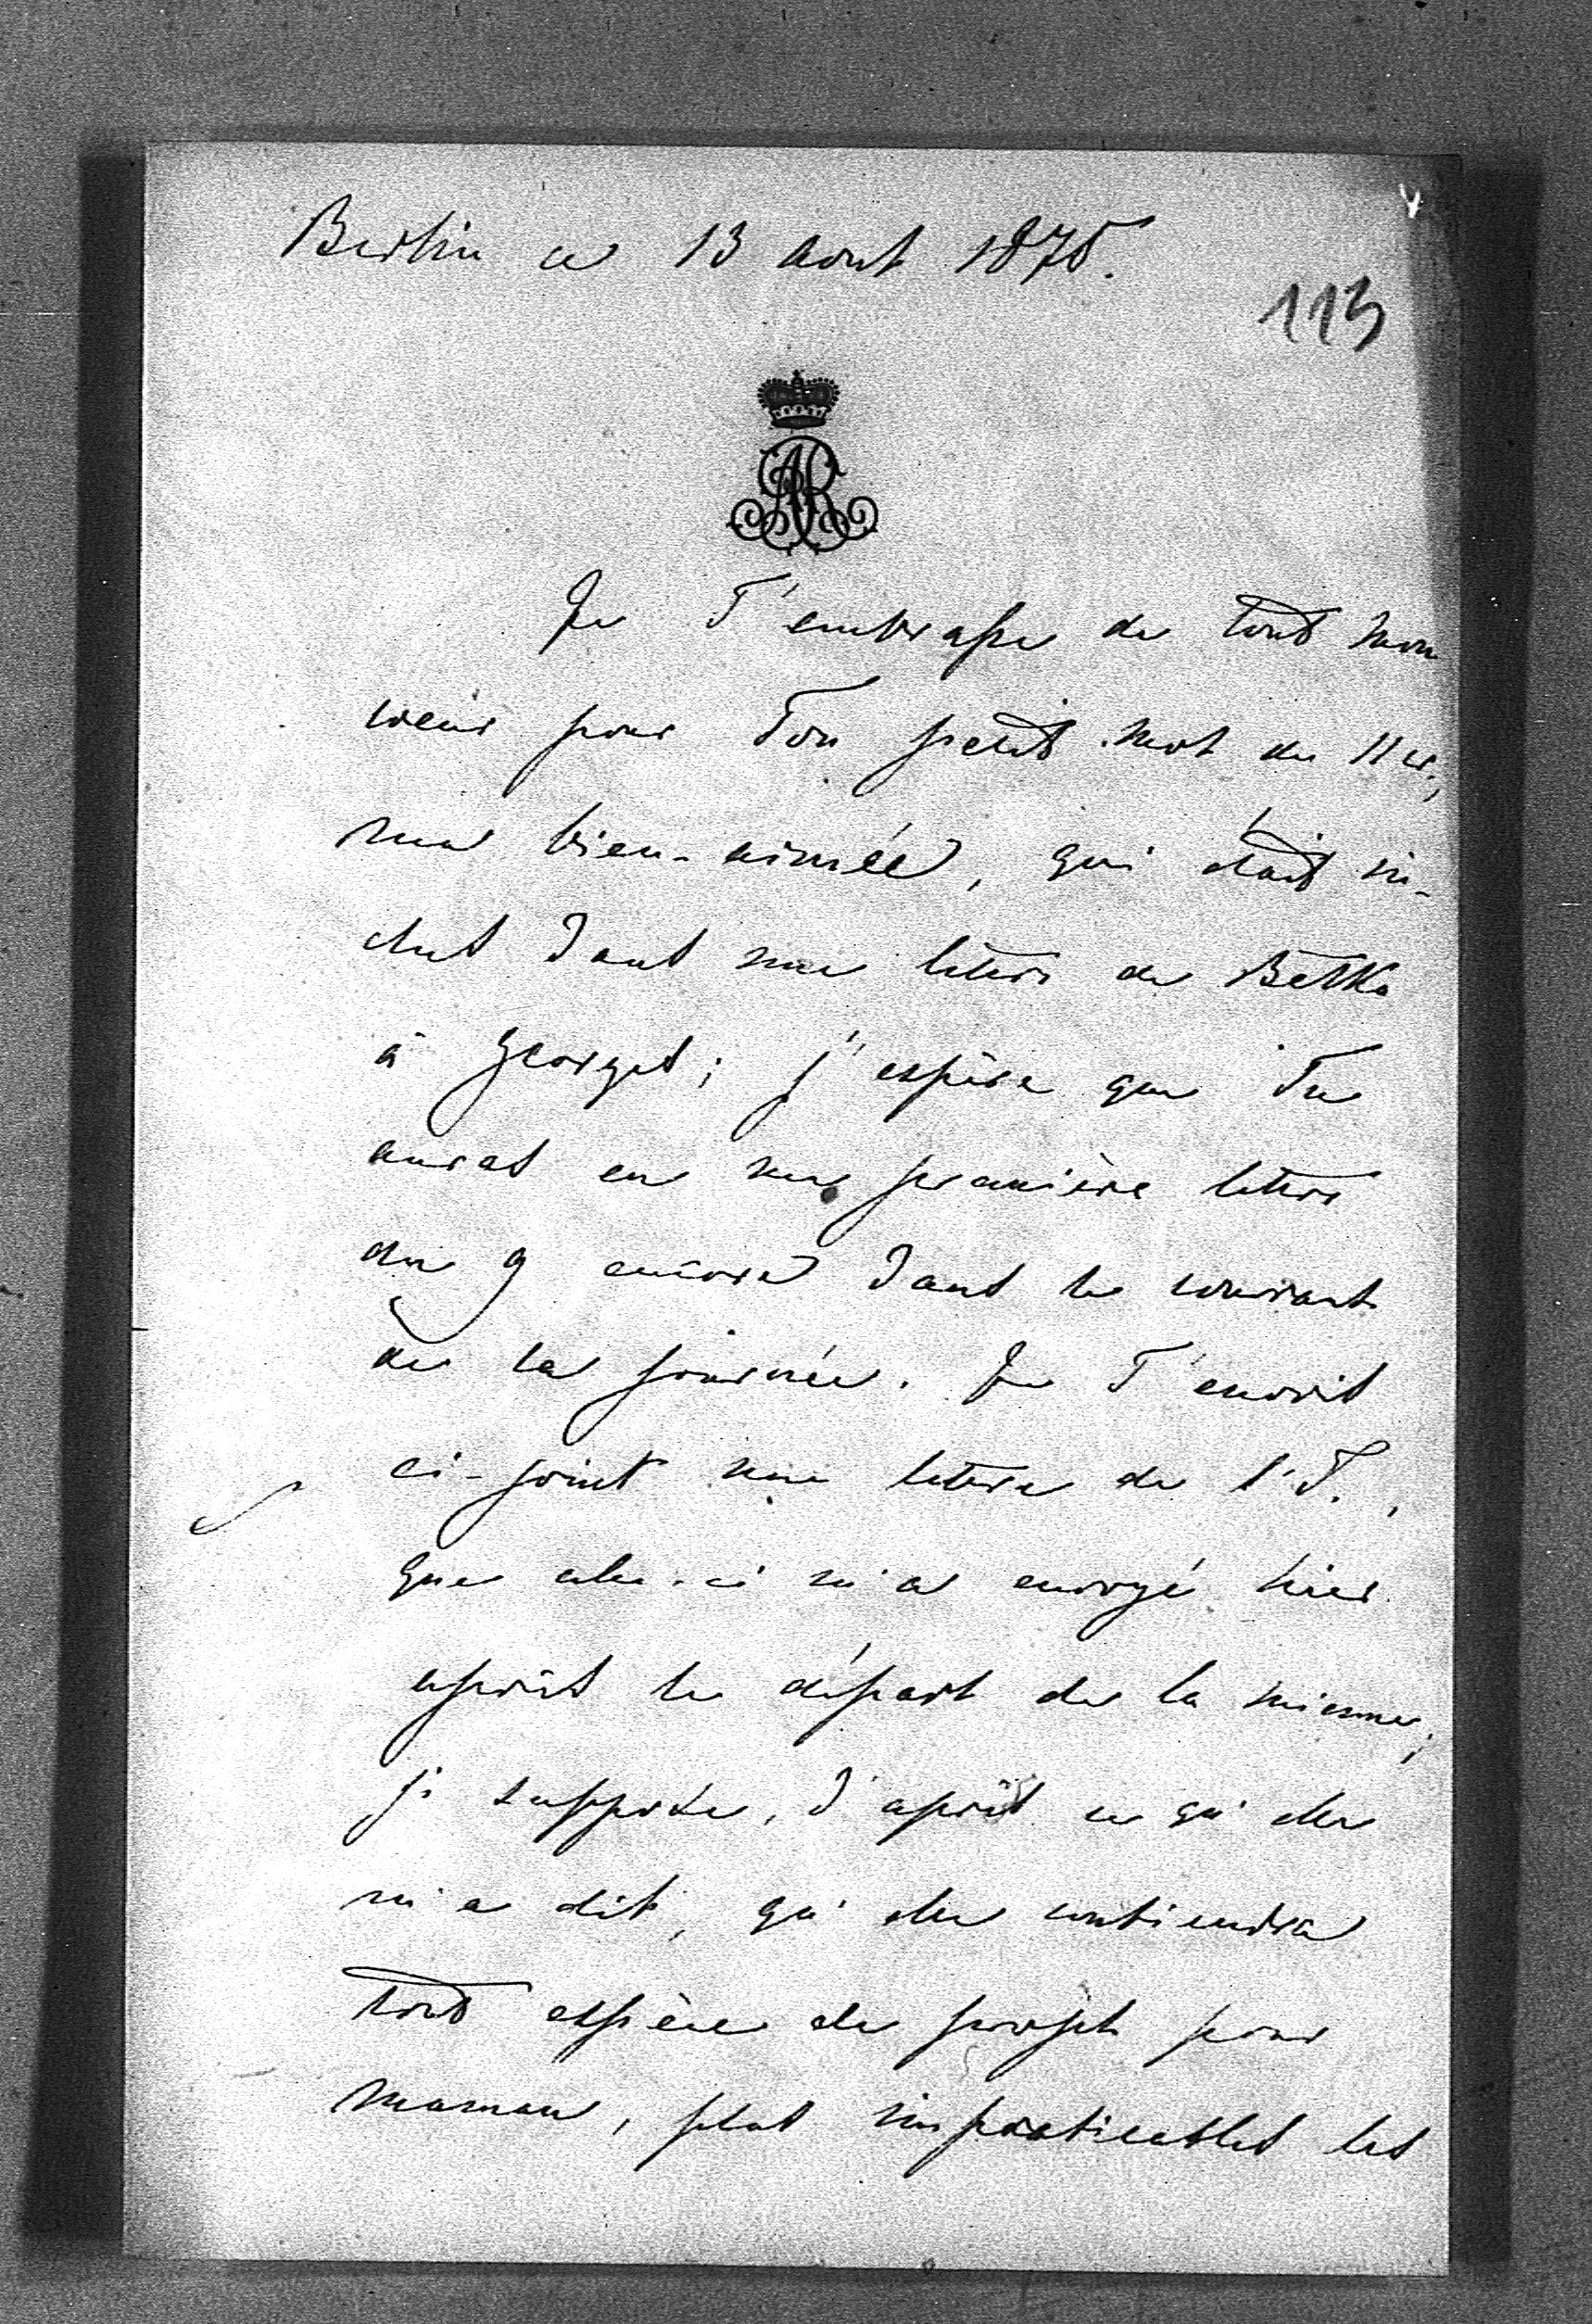 Berlin ce 13 Aout 1875.
113
AR
Je T'embrasse de tout mon
coeur pour Ton petit mot du 11 cr.,
ma bien-aimée, qui était in-
clus dans une lettre de
à Georges; j'espère que Tu
auras eu ma première lettre
du 9 encore dans le courant
de la journée. Je T'envois
ci-joint une lettre de l'I.,
que celle-ci m'a envoyé hier
après le départ de la mienne;
je suppose, d'après ce qu'elle
m'a dit, qu'elle contiendra
tout espèce de projets pour
maman, plus impraticables les